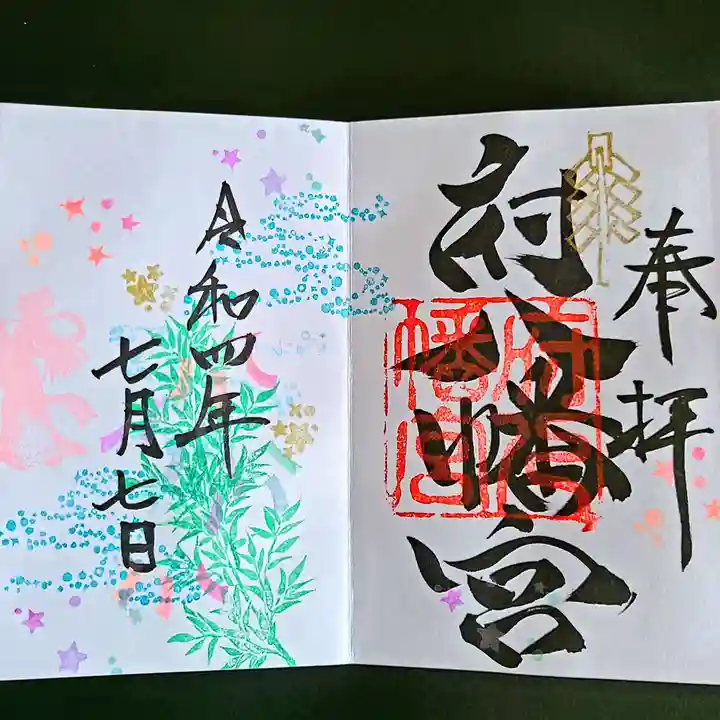 奉拝
府八幡宮
府八幡宮
令和四年
七月七日